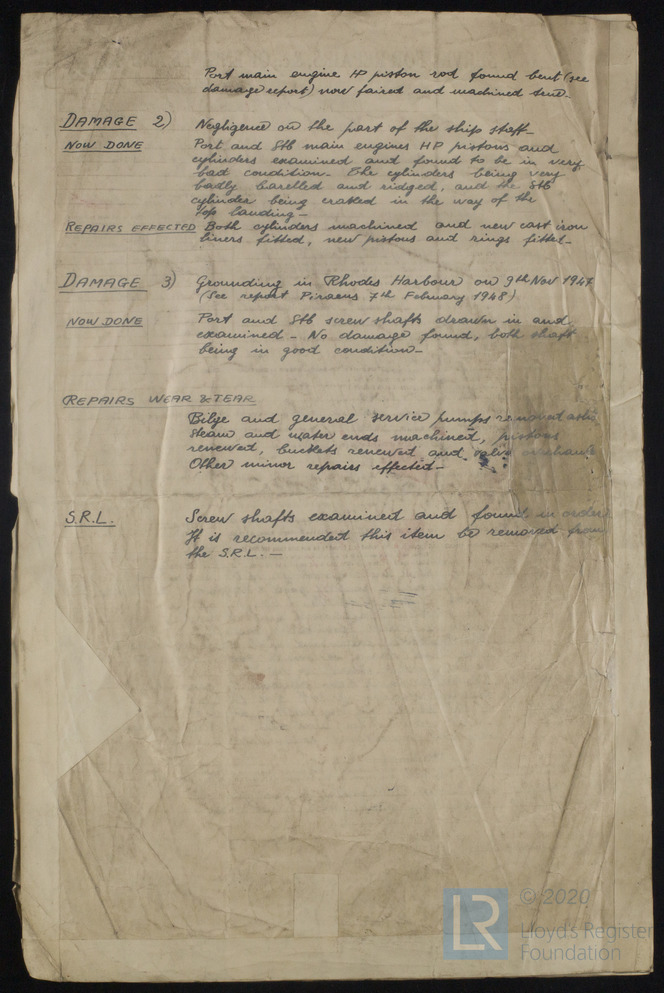 Port main engine HP piston rod found bent (see
damage report) now faired and machined true.
DAMAGE 2) Negligence on the part of the ship staff.
NOW DONE Port and Stb main engines HP pistons and
cylinders examined and found to be in very
bad condition. The cylinders being very
badly barelled and ridged, and the Stb
cylinder being cracked in the way of the
Top landing.
REPAIRS EFFECTED Both cylinders machined and new cast iron
liners fitted, new pistons and rings fitted.
DAMAGE 3) Grounding in Rhodes Harbour on 9th Nov 1947
(See report Piraeus 7th February 1948)
NOW DONE Port and Stb screw shafts drawn in and
examined - No damage found, both shaft
being in good condition.
REPAIRS WEAR & TEAR
Bilge and general service pumps removed
Steam and water ends machined, pistons
renewed, buckets renewed and valve
Other minor repairs effected.
S.R.L. Screw shafts examined and found in order
It is recommended this item be removed from
the S.R.L. —
LR
© 2020
Lloyd's Register
Foundation